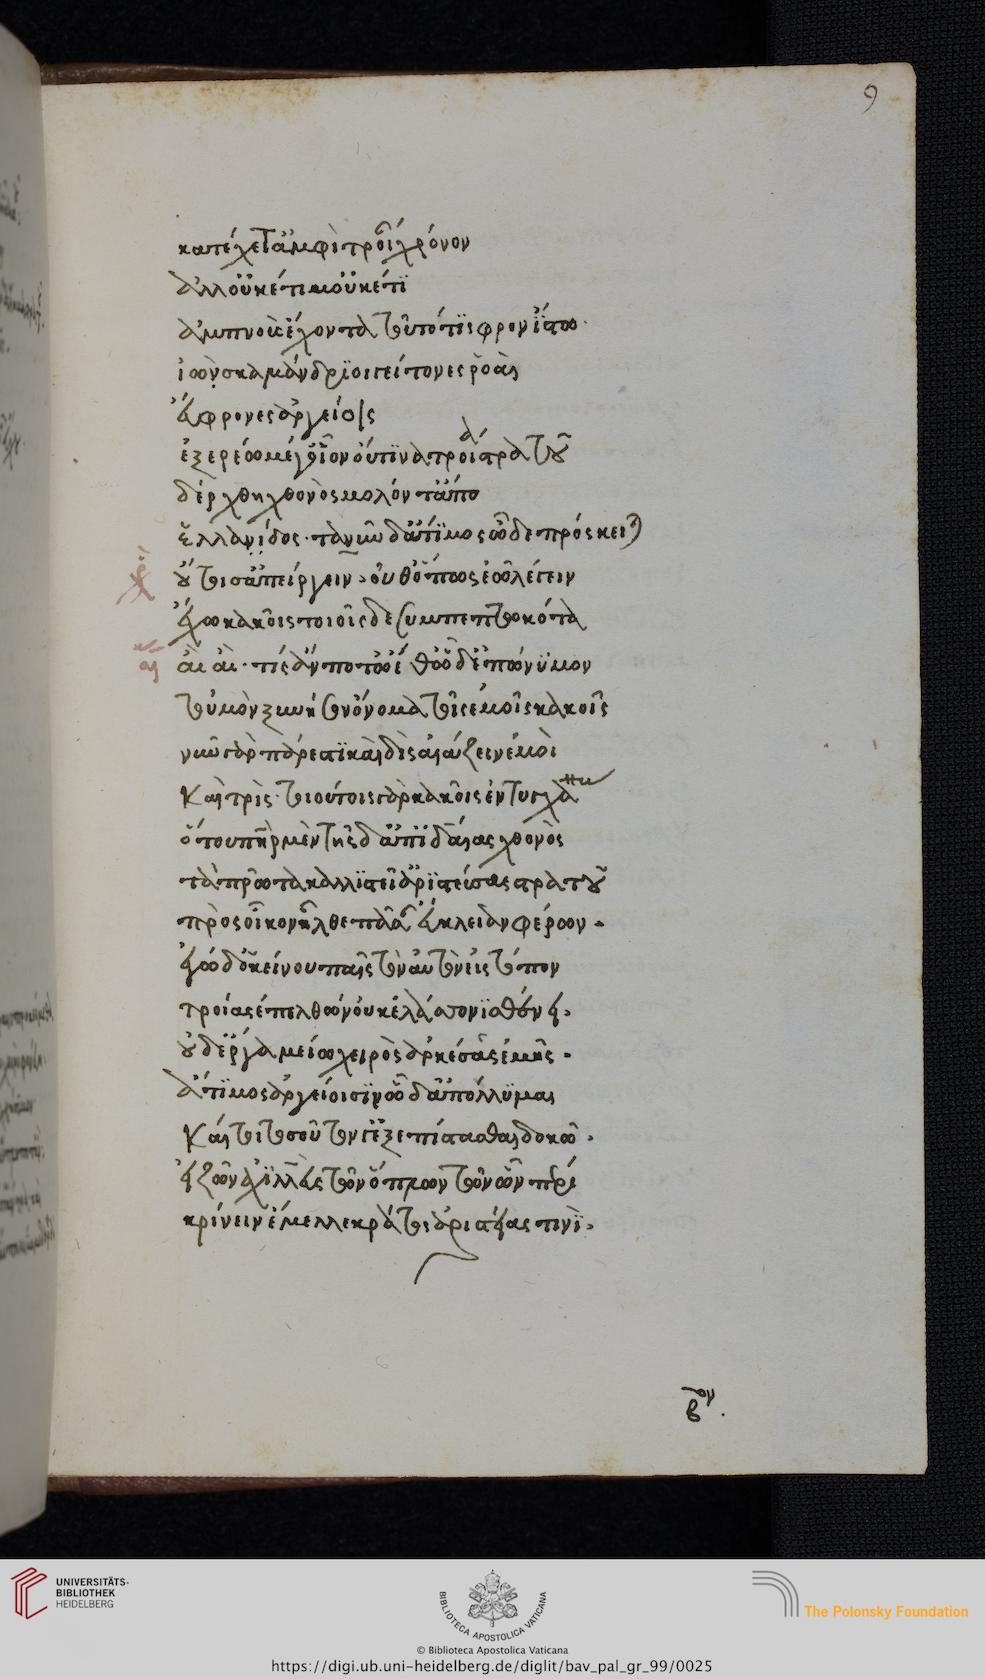 9
κατέχετ' ἀμφὶ τροίαν χρόνον
ἀλλ' οὐκέτι μ' οὐκέτι
ἀμπνοὰς ἔχοντα τοῦτό τις φρονείτω.
ἰὼ σκαμάνδριοι γείτονες ῥοὰι
ἐύφρονες ἀργείοις
ἐξερέω μέγ' οἷον οὔτινα τροία στρατοῦ
δέρχθη χθονὸς μολόντ' ἀπὸ
ἑλλανίδος. τανῦν δ' ἄτιμος ὧδε πρόσκειμαι
οὔτοι σ' ἀπείργειν. οὐθ' ὅπως ἐῶ λέγειν
ἔχω κακοῖς τοιοῖσδε συμπεπτωκότα
αἴ
αἰ αἰ. τίς ἄν ποτ' ᾤεθ' ὧδ' ἐπώνυμον
τοὐμὸν ξυνοίσειν ὄνομα τοῖς ἐμοῖς κακοῖς
νῦν γὰρ πάρεστι καὶ δὶς αἰάζειν ἐμὸι
καὶ τρίς. τοιούτοις γὰρ κακοῖς ἐντυγχάνω
ὅτου πατὴρ μὲν τῆσδ' ἀπ' ἰδαίας χθονὸς
τὰ πρῶτα καλλιστεῖ' ἀριστεύσας στρατοῦ
πρὸς οἶκον ἦλθε πᾶσαν εὔκλειαν φέρων.
ἐγὼ δ' ὁ κείνου παῖς τὸν αὐτὸν εἰς τόπον
τροίας ἐπελθὼν οὐκ ἐλάσσονι σθένει.
οὐδ' ἔργα μείω χειρὸς ἀρκέσας ἐμῆς.
ἄτιμος ἀργείοισιν ὧδ' ἀπόλλυμαι
καί τοι τοσοῦτόν γ' ἐξεπίστασθαι δοκῶ.
εἰ ζῶν ἀχιλλεὺς τῶν ὅπλων τῶν ὧν πέρι
κρίνειν ἔμελλε κράτος ἀριστείας τινὶ.
βον.
UNIVERSITÄTS-
BIBLIOTHEK
HEIDELBERG
BIBLIOTECA APOSTOLICA VATICANA
The Polonsky Foundation
© Biblioteca Apostolica Vaticana
https://digi.ub.uni-heidelberg.de/diglit/bav_pal_gr_99/0025